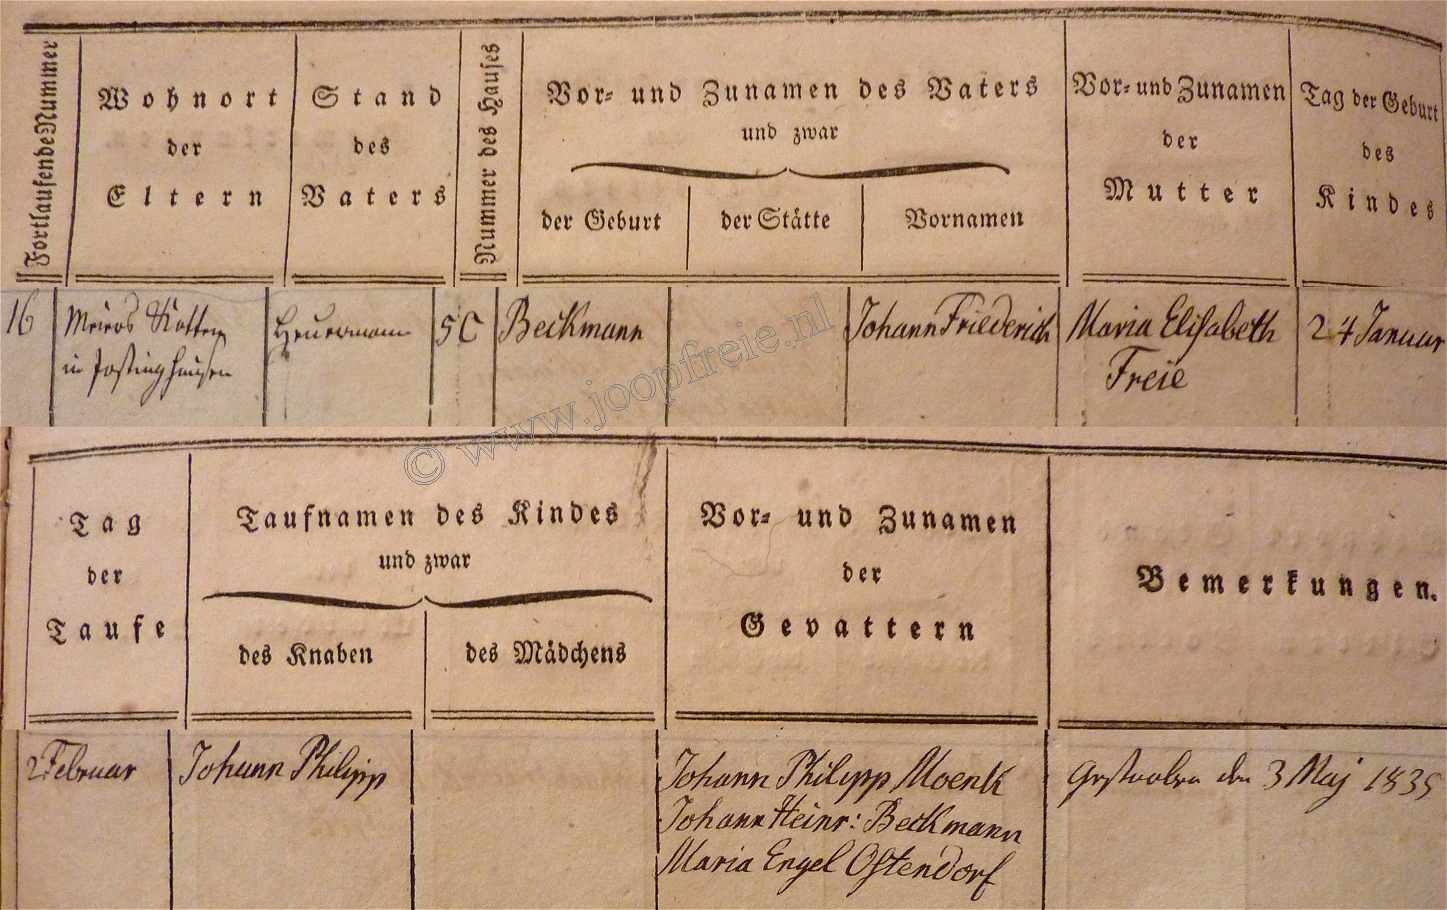 Fortlaufende Nummer
Wohnort
der
Eltern
Stand
des
Vaters
Nummer des Hauses
Vor- und Zunamen des Vaters
und zwar
der Geburt
der Stätte
Vornamen
Vor- und Zunamen
der
Mutter
Tag der Geburt
des
Kindes
16
Meiers Kotten
in Jostinghausen
Heuermann
5C
Beckmann
Johann Friederich
Maria Elisabeth
Freie
24 Januar
© www.joopfreie.nl
Tag
der
Taufe
Taufnamen des Kindes
und zwar
des Knaben
des Mädchens
Vor- und Zunamen
der
Gevattern
Bemerkungen.
2 Februar
Johann Philipp
Johann Philipp Moenk
Johann Heinr: Beckmann
Maria Engel Ostendorf
Gestorben den 3 Maj 1835